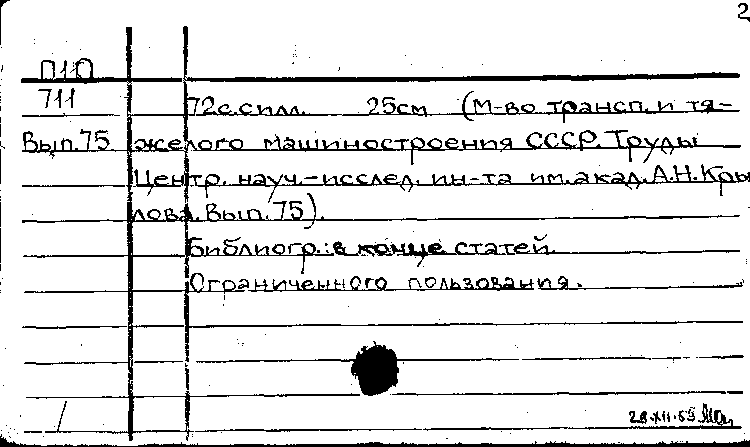 2
П10
711 72с.с илл. 25см (М-во трансп. и тя-
Вып.75 желого машиностроения СССР. Труды
Центр. науч.-исслед. ин-та им. акад. А.Н. Кры
лова. Вып. 75).
Библиогр.: в конце статей.
Ограниченного пользования.